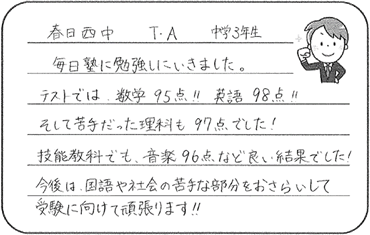 春日西中 T.A 中学3年生
毎日塾に勉強しにいきました。
テストでは、数学 95点!! 英語 98点!!
そして苦手だった理科も 97点でした!
技能教科でも、音楽 96点など良い結果でした!
今後は、国語や社会の苦手な部分をおさらいして
受験に向けて頑張ります!!